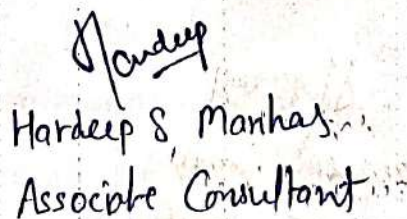 Hardeep
Hardeep S, Manhas...
Associate Consultant...